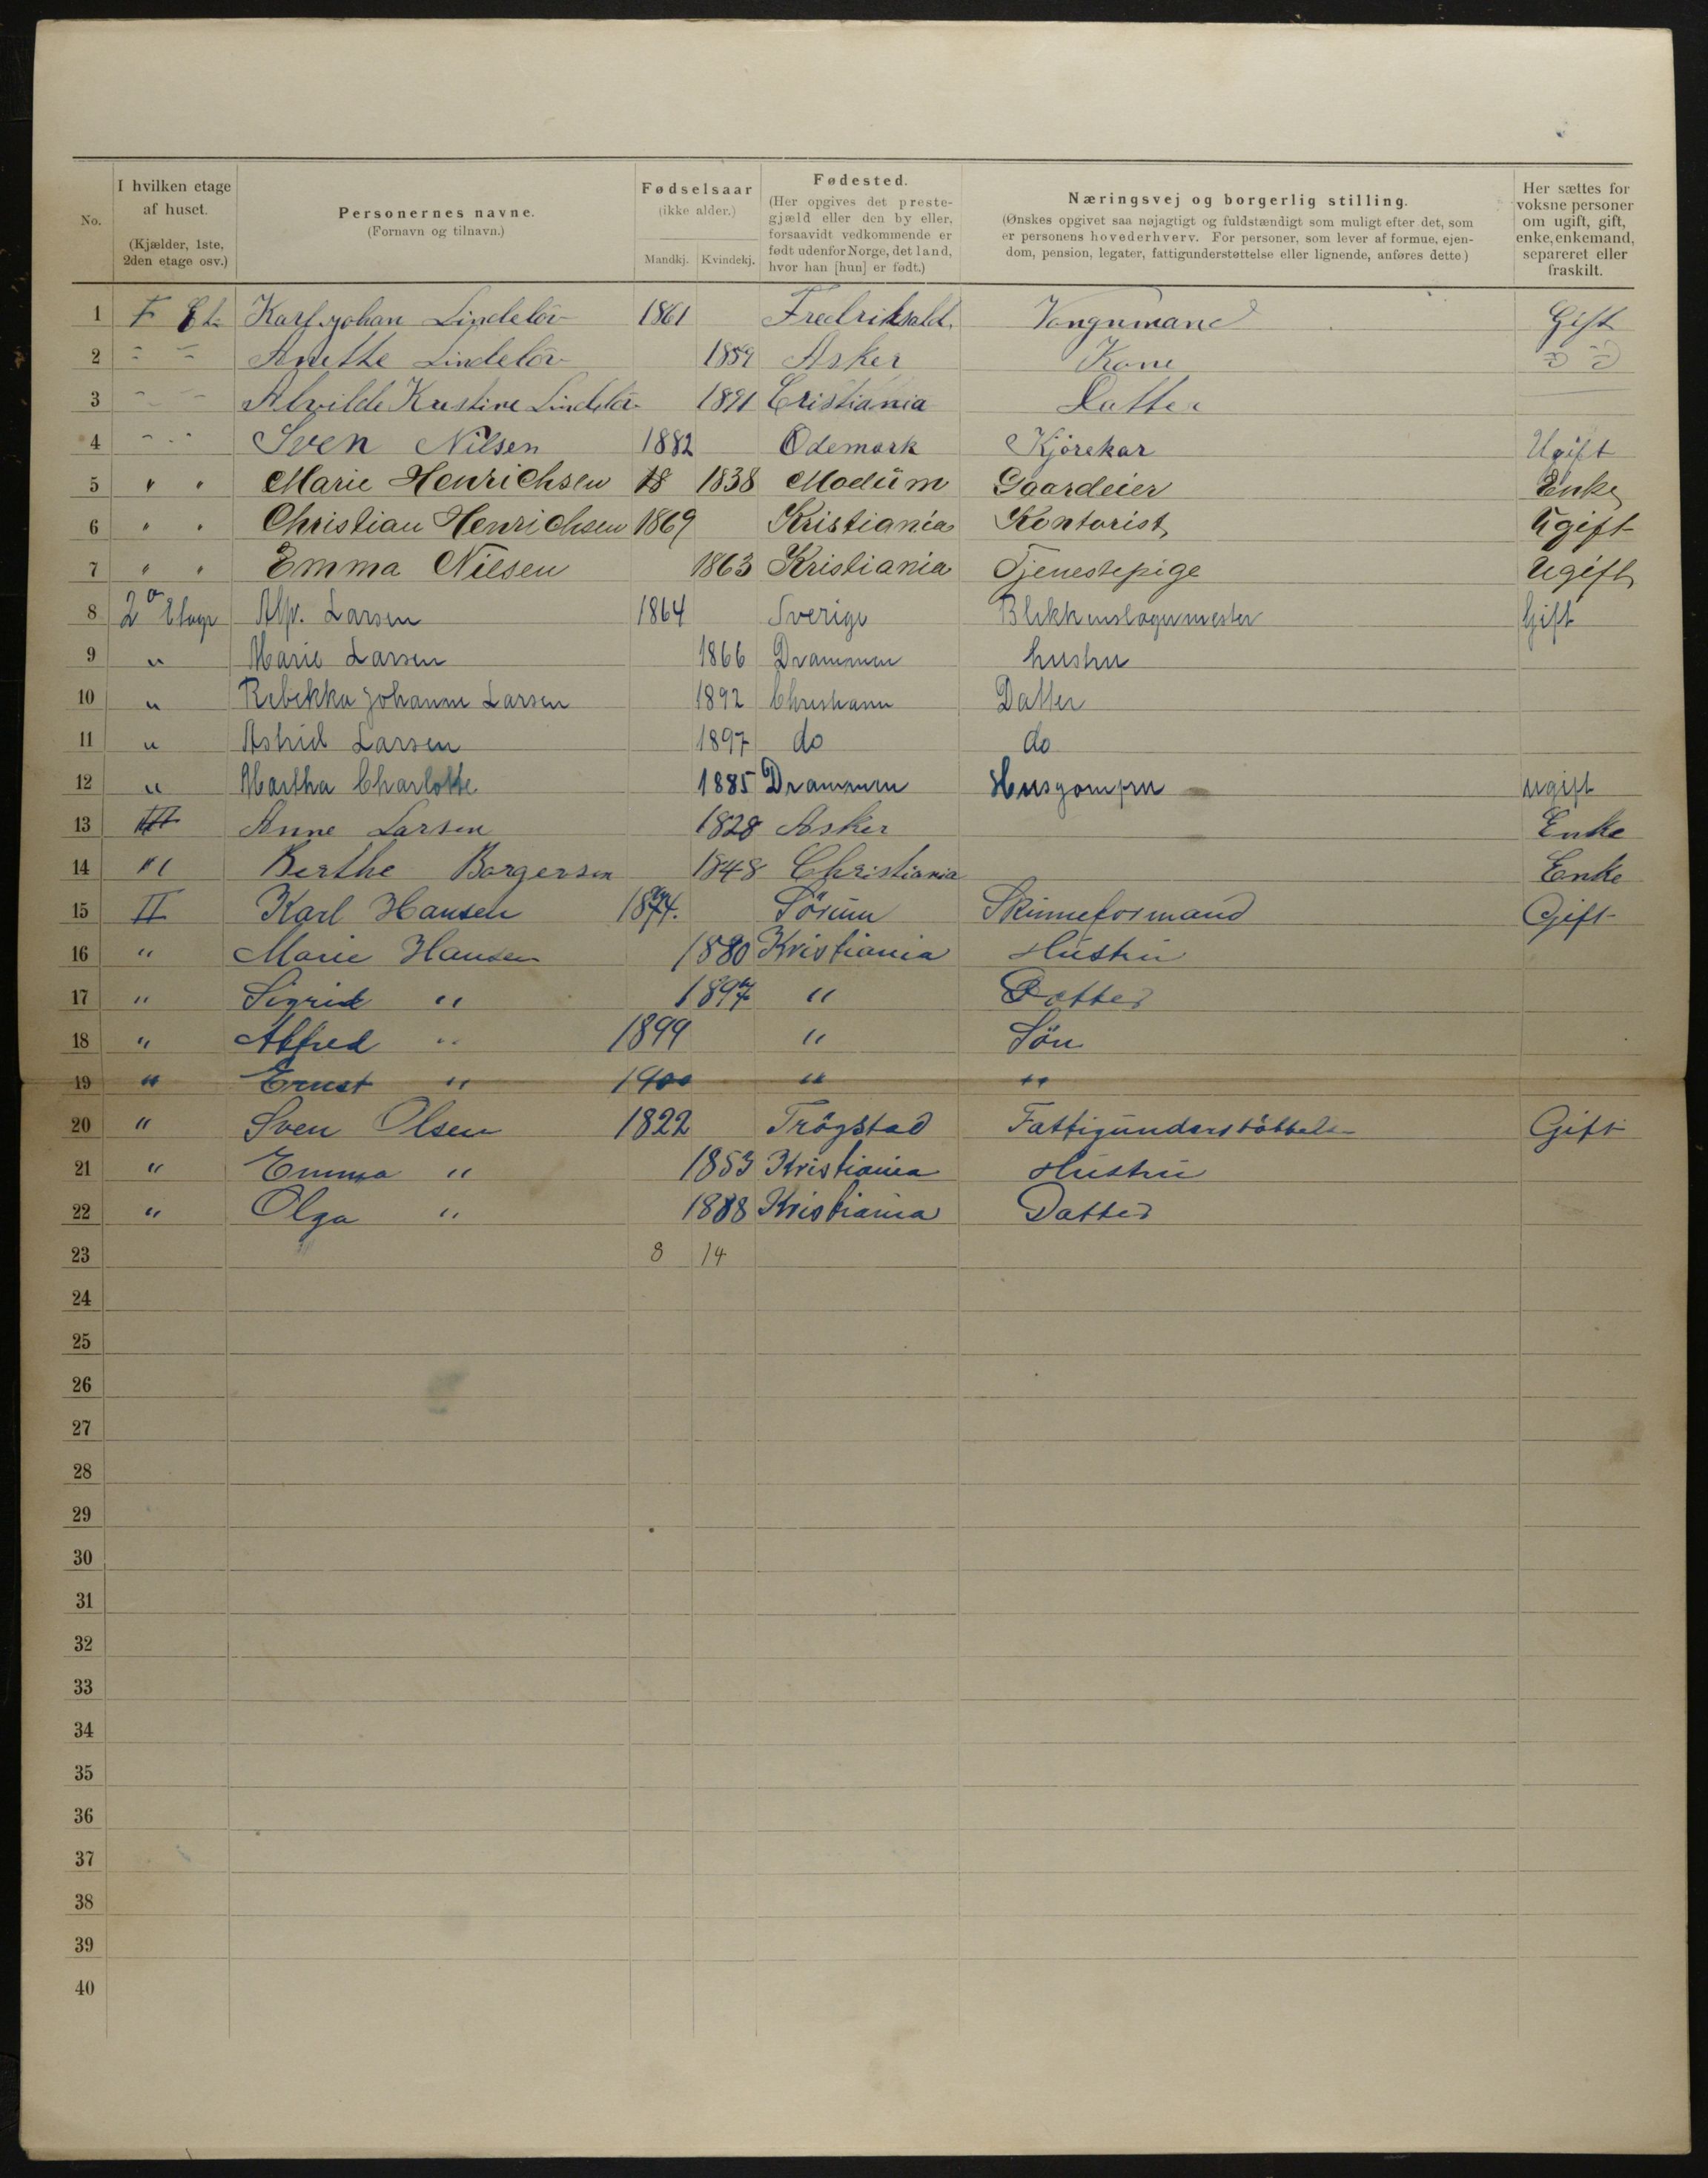 No.
I hvilken etage af huset. (Kjælder, 1ste, 2den etage osv.)
Personernes navne. (Fornavn og tilnavn.)
Fødselsaar (ikke alder.) Mandkj. Kvindekj.
Fødested. (Her opgives det prestegjæld eller den by eller, forsaavidt vedkommende er født udenfor Norge, det land, hvor han [hun] er født.)
Næringsvej og borgerlig stilling. (Ønskes opgivet saa nøjagtigt og fuldstændigt som muligt efter det, som er personens hovederhverv. For personer, som lever af formue, ejendom, pension, legater, fattigunderstøttelse eller lignende, anføres dette)
Her sættes for voksne personer om ugift, gift, enke, enkemand, separeret eller fraskilt.
1 I Et. Karl Johan Lindelöv 1861 Fredriksald. Vongnmand Gift
2 " " Anette Lindelöv 1859 Asker Kone " "
3 " " Alvilde Kristine Lindelöv 1891 Cristiania Datter
4 " " Sven Nilsen 1882 Odemark Kjörekar Ugift
5 " " Marie Henrichsen 18 1838 Modum Gaardeier Enke
6 " " Christian Henrichsen 1869 Kristiania Kontorist Ugift
7 " " Emma Nilsen 1863 Kristiania Tjenestepige Ugift
8 2 Etage Alf. Larsen 1864 Sverige Blikkenslagermester Gift
9 " Marie Larsen 1866 Drammen hustru
10 " Rebekka Johanne Larsen 1892 Christiania Datter
11 " Astrid Larsen 1897 do do
12 " Martha Charlotte 1885 Drammen Husjomfru ugift
13 III Anne Larsen 1828 Asker Enke
14 " Berthe Borgersen 1848 Christiania Enke
15 II Karl Hansen 1874. Sörum Skinneformand Gift
16 " Marie Hansen 1880 Kristiania Hustru
17 " Sigrid " 1897 " Datter
18 " Alfred " 1899 " Sön
19 " Ernst " 1900 " "
20 " Sven Olsen 1822 Trögstad Fattigunderstöttelse Gift
21 " Emma " 1853 Kristiania Hustru
22 " Olga " 1888 Kristiania Datter
23 8 14
24
25
26
27
28
29
30
31
32
33
34
35
36
37
38
39
40